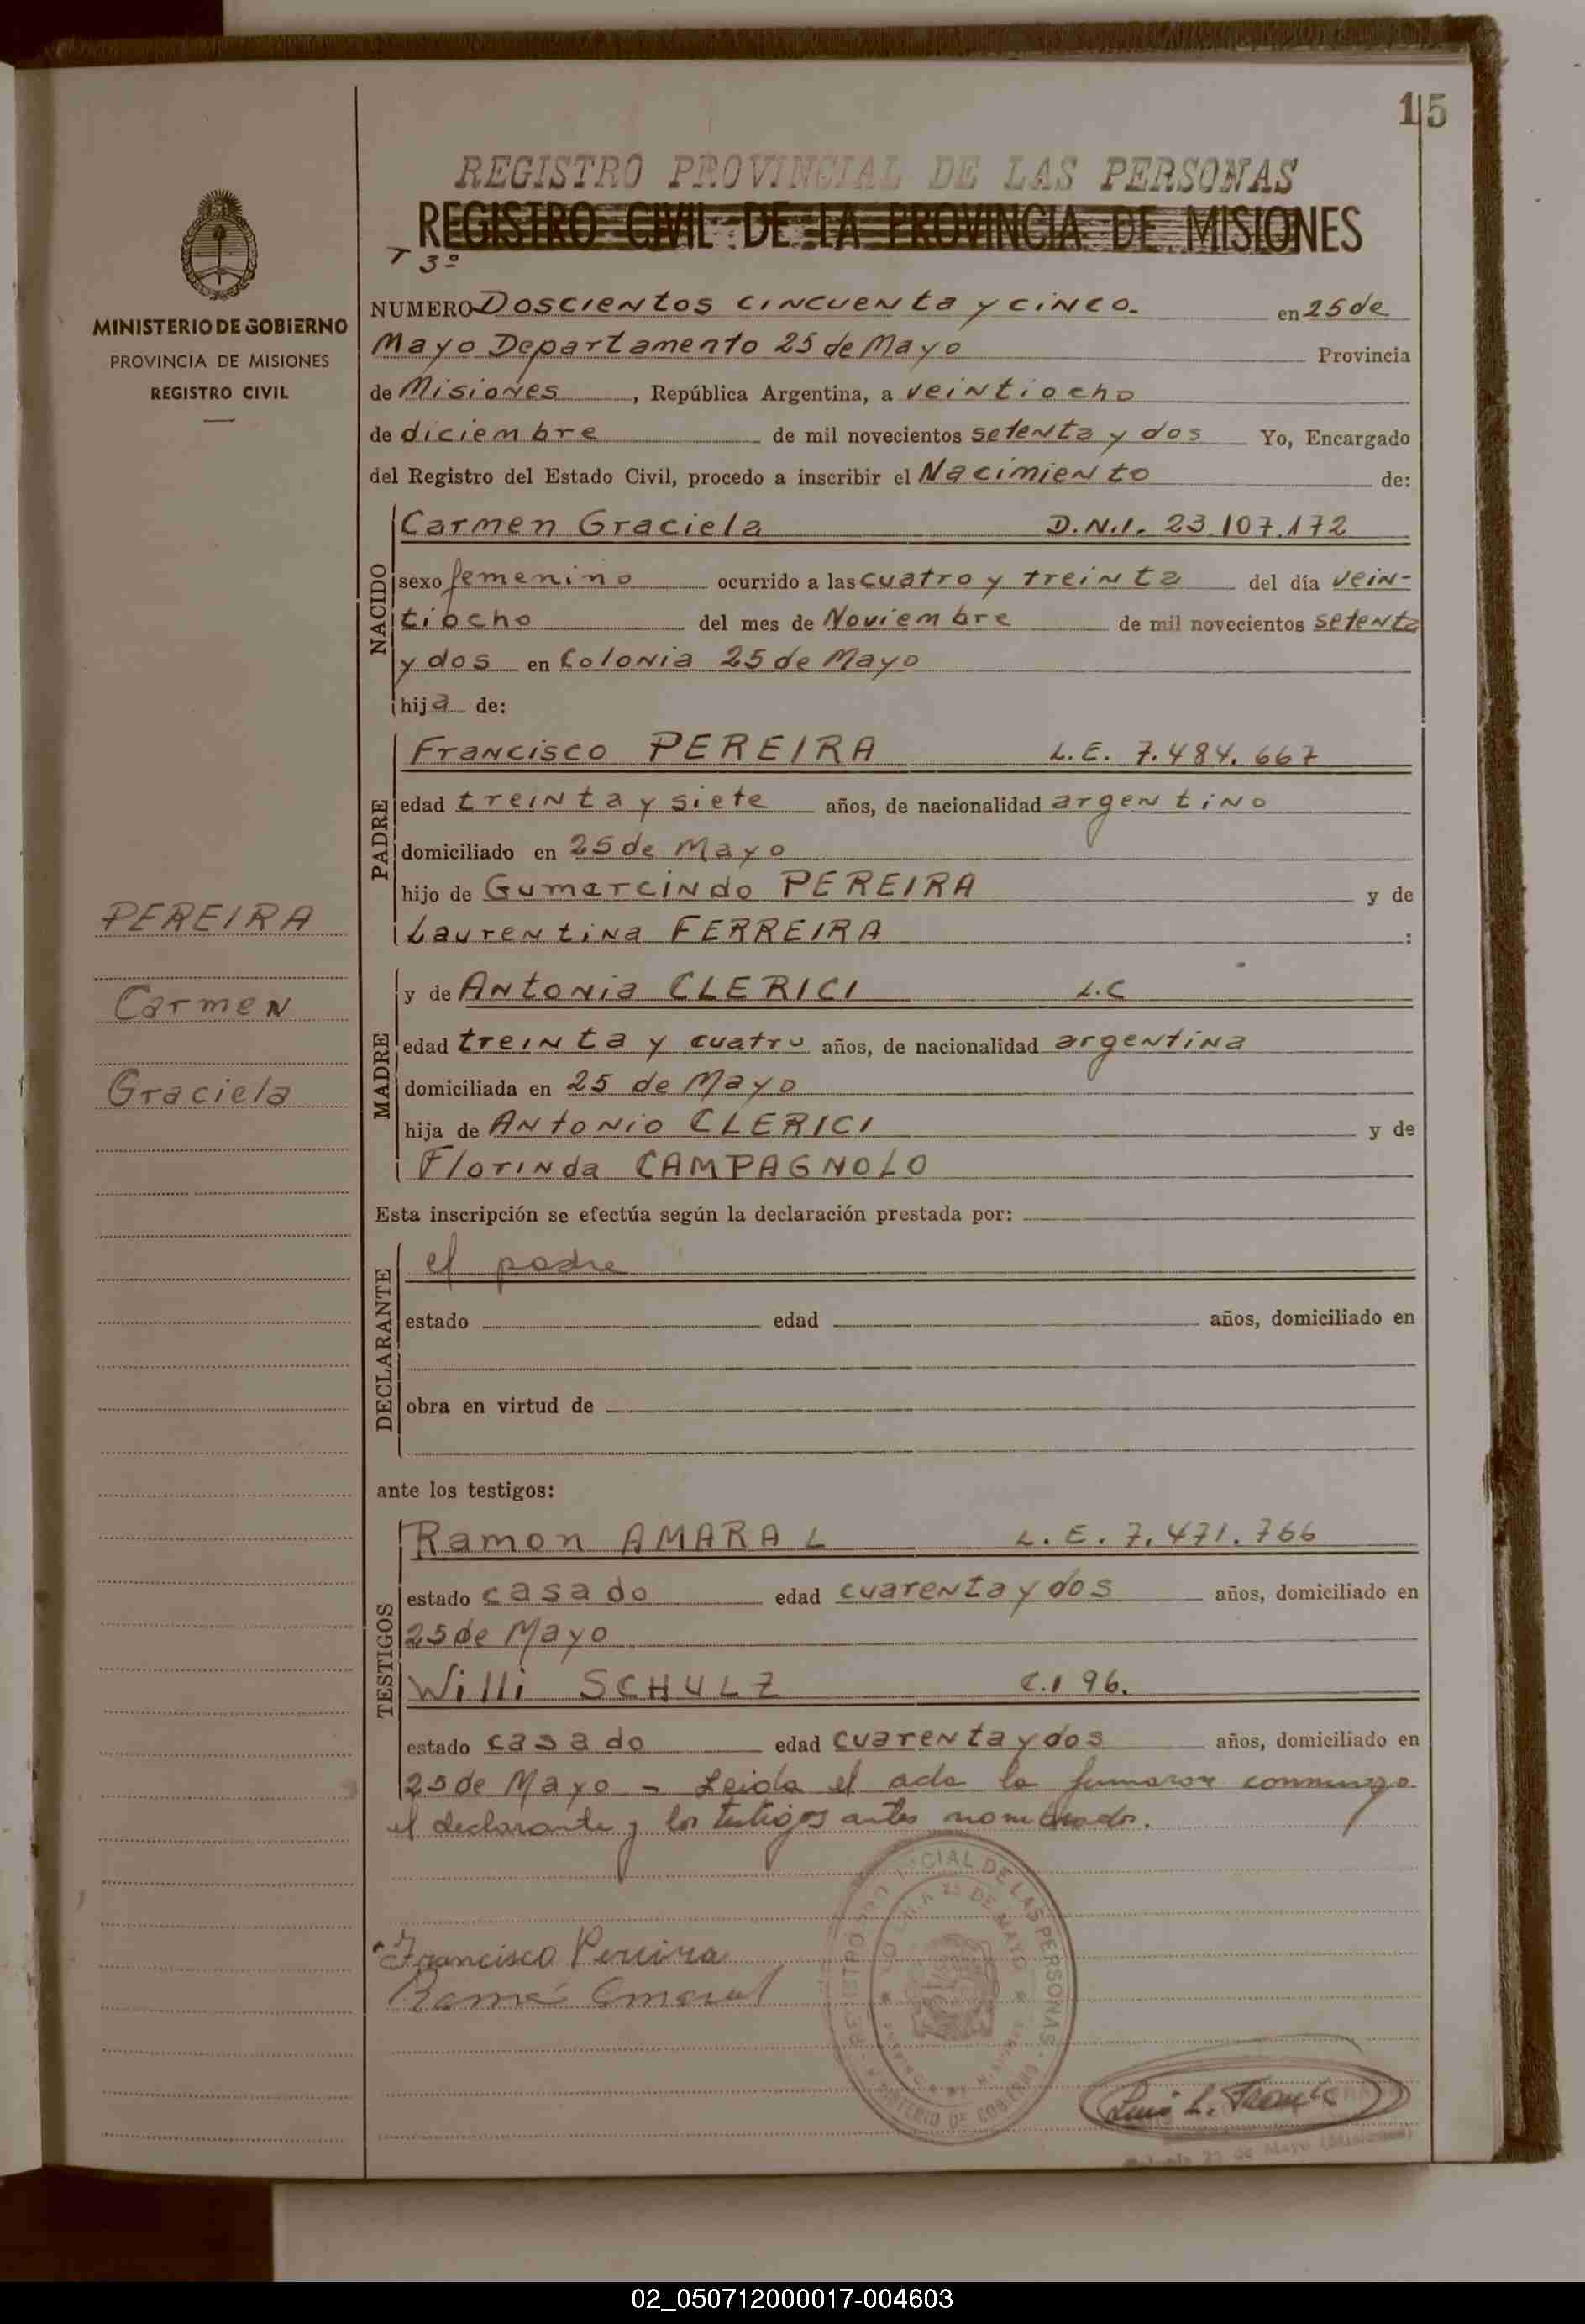 15
REGISTRO PROVINCIAL DE LAS PERSONAS
REGISTRO CIVIL DE LA PROVINCIA DE MISIONES
T 3º
MINISTERIO DE GOBIERNO
PROVINCIA DE MISIONES
REGISTRO CIVIL
PEREIRA
Carmen
Graciela
NUMERO Doscientos cincuenta y cinco. en 25 de
Mayo Departamento 25 de Mayo Provincia
de Misiones, República Argentina, a veintiocho
de diciembre de mil novecientos setenta y dos Yo, Encargado
del Registro del Estado Civil, procedo a inscribir el Nacimiento de:
NACIDO
Carmen Graciela D.N.I. 23.107.172
sexo femenino ocurrido a las cuatro y treinta del día vein-
tiocho del mes de Noviembre de mil novecientos setenta
y dos en Colonia 25 de Mayo
hija de:
PADRE
Francisco PEREIRA L.E. 7.484.667
edad treinta y siete años, de nacionalidad argentino
domiciliado en 25 de Mayo
hijo de Gumarcindo PEREIRA y de
Laurentina FERREIRA :
MADRE
y de Antonia CLERICI L.C
edad treinta y cuatro años, de nacionalidad argentina
domiciliada en 25 de Mayo
hija de Antonio CLERICI y de
Florinda CAMPAGNOLO
Esta inscripción se efectúa según la declaración prestada por:
DECLARANTE
el padre
estado edad años, domiciliado en
obra en virtud de
ante los testigos:
TESTIGOS
Ramon AMARAL L.E. 7.471.766
estado casado edad cuarenta y dos años, domiciliado en
25 de Mayo
Willi SCHULZ C.I 96.
estado casado edad cuarenta y dos años, domiciliado en
25 de Mayo - Leida el acta la firmaron conmigo
el declarante y los testigos antes nombrados.
Francisco Pereira
DE LAS PERSONAS
25 DE MAYO
MINISTERIO DE GOBIERNO
25 de Mayo (Misiones)
02_050712000017-004603